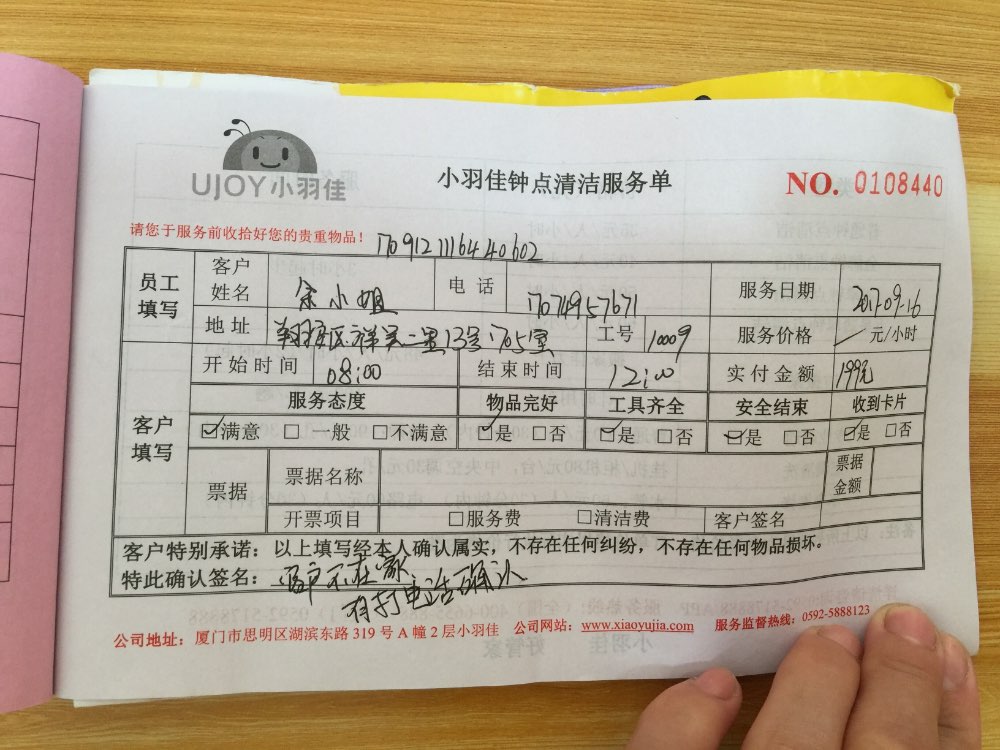 UJOY小羽佳
小羽佳钟点清洁服务单
NO. 0108440
请您于服务前收拾好您的贵重物品！
17091211164440602
员工填写 客户姓名 余小姐 电话 17074957671 服务日期 2017-09-16
地址 翔安区祥吴二里13号705室 工号 10009 服务价格 元/小时
客户填写 开始时间 08:00 结束时间 12:00 实付金额 199元
服务态度 物品完好 工具齐全 安全结束 收到卡片
☑满意 □一般 □不满意 ☑是 □否 ☑是 □否 ☑是 □否 ☑是 □否
票据 票据名称 票据金额
开票项目 □服务费 □清洁费 客户签名
客户特别承诺：以上填写经本人确认属实，不存在任何纠纷，不存在任何物品损坏。
特此确认签名：客户不在家
有打电话确认
公司地址：厦门市思明区湖滨东路 319 号 A 幢 2 层小羽佳 公司网站：www.xiaoyujia.com 服务监督热线：0592-5888123